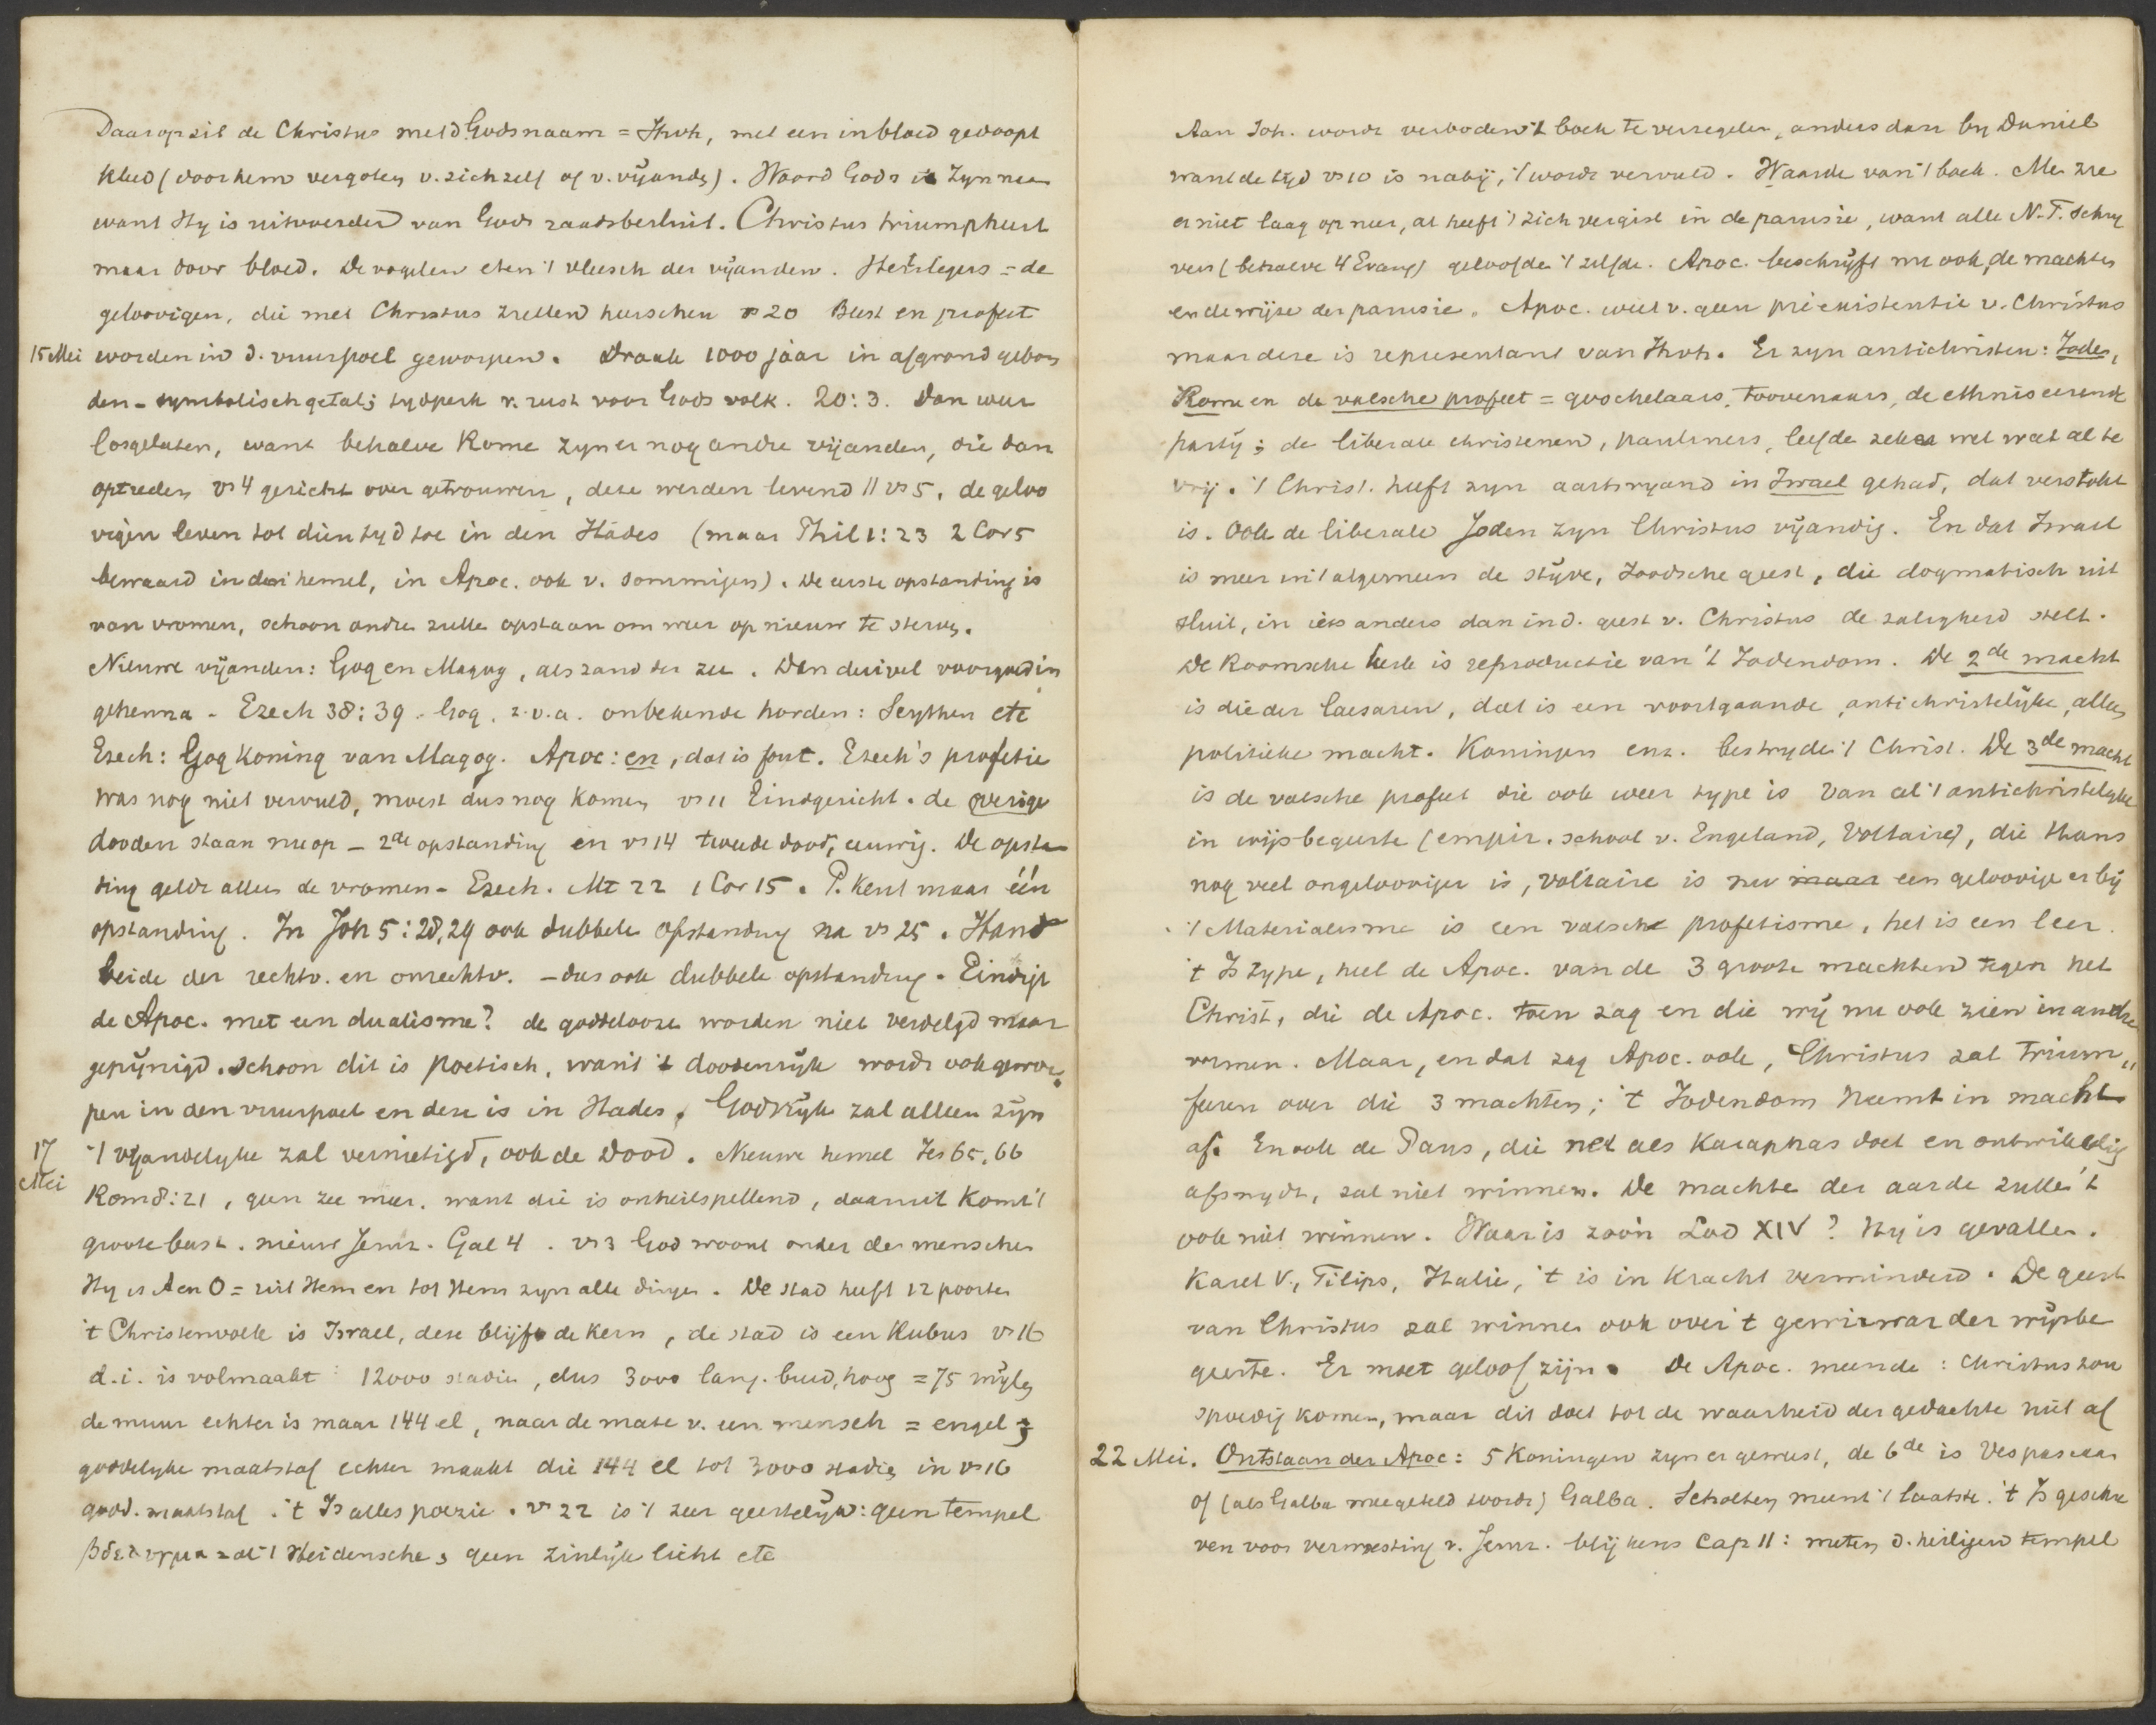 Daarop zit de Christus met d Godsnaam = Jhvh, met een in bloed gedoopt
kleed (door hem vergoten v. zichzelf of v. vijanden). Woord Gods is Zyn naam
want Hy is uitvoerder van Gods raadsbesluit. Christus triumpheert
maar door bloed. De vogelen eten 't vleesch der vijanden. Heirlegers = de
geloovigen, die met Christus zullen heerschen vs 20 Beest en profeet
15 Mei worden in d. vuurpoel geworpen. Draak 1000 jaar in afgrond gebon
den - symbolisch getal; tydperk v. rust voor Gods volk. 20:3. Dan weer
losgelaten, want behalve Rome zyn er nog andre vijanden, die dan
optreden vs 4 gericht over getrouwen, deze werden levend || vs 5. de geloo
vigen leven tot dien tyd toe in den Hades (maar Phil 1:23 2 Cor 5
bewaard in den hemel, in Apoc. ook v. sommigen). De eerste opstanding is
van vromen, schoon andre zulle opstaan om weer op nieuw te sterven.
Nieuwe vijanden: Gog en Magog, als zand der zee. Dan duivel voorgoed in
gehenna - Ezech 38:39. Gog. z.v.a. onbekende horden: Scythen etc
Ezech: Gog koning van Magog. Apoc: en, dat is fout. Ezech's profetie
was nog niet vervuld, moest dus nog komen vs 11 Eindgericht. de overige
dooden staan nu op - 2de opstanding en vs 14 tweede dood, eeuwig. De opstan
ding geldt alleen de vromen - Ezech. Mt 22 1 Cor 15. P. kent maar één
opstanding. In Joh 5:28,29 ook dubbele opstanding na vs 25. Hand
beide der rechtv. en onrechtv. - dus ook dubbele opstanding. Eindigt
de Apoc. met een dualisme? de goddeloozen worden niet verdelgd maar
gepynigd. Schoon dit is poetisch, want 't doodenryk wordt ook gewor
pen in den vuurpoel en deze is in Hades. Godsryk zal alleen zijn
17 Mei 't vyandelyke zal vernietigd, ook de Dood. Nieuwe hemel Jes 65,66
Rom 8:21, geen zee meer. want die is onheilspellend, daaruit komt 't
groote beest. nieuw Jeruz. Gal 4. vs 3 God woont onder de menschen
Hy is A en O = uit Hem en tot Hem zyn alle dingen. De stad heeft 12 poorten
't Christenvolk is Israel, deze blijft de kern, de stad is een kubus vs 16
d.i. is volmaakt 12000 stadie, dus 3000 lang. breed, hoog = 75 mijlen
de muur echter is maar 144 el, naar de mate v. een mensch = engel;
goddelyke maatstaf echter maakt die 144 el tot 3000 stadie in vs 16
godd. maatstaf. 't Is alles poezie. vs 22 is 't zeer geestelijk: geen tempel
βδελυγμα zal 't Heidensche, geen zinlijk licht etc
Aan Joh. wordt verboden 't boek te verzegelen, anders dan by Daniel
want de tyd vs 10 is nabij, 't wordt vervuld. Waarde van 't boek. Men zie
er niet laag op neer, al heeft 't zich vergist in de parusie, want alle N.T. schry
vers (behalve 4 Evang) geloofden 't zelfde. Apoc. beschrijft nu ook de machten
en de wijze der parusie. Apoc. weet v. geen préexistentie v. Christus
maar deze is representant van Jhvh. Er zyn antichristen: Joden,
Rome en de valsche profeet = goochelaars, toovenaars, de ethniseerende
party; de liberale christenen, pauliners, leefden zeker wel wat al te
vrij. 't Christ. heeft zyn aartsvyand in Israel gehad, dat verstokt
is. Ook de liberale Joden zyn Christus vijandig. En dat Israel
is meer in 't algemeen de stijve, Joodsche geest, die dogmatisch uit
sluit, in iets anders dan in d. geest v. Christus de zaligheid stelt.
De Roomsche kerk is reproductie van 't Jodendom. De 2de macht
is die der Caesaren, dat is een voortgaande, antichristelijke, alleen
politieke macht. Koningen enz. bestryden 't Christ. De 3de macht
is de valsche profeet die ook weer type is van al 't antichristelyke
in wijsbegeerte (empir. school v. Engeland, Voltaire), die thans
nog veel ongelooviger is, Voltaire is nu maar een geloovige er bij
't Materialisme is een valsche profetisme, het is een leer.
't Is type, heel de Apoc. van de 3 groote machten tegen het
Christ, die de Apoc. toen zag en die wij nu ook zien in andre
vormen. Maar, en dat zag Apoc. ook, Christus zal trium„
feeren over die 3 machten; 't Jodendom neemt in macht
af. En ook de Paus, die net als Kajaphas doet en ontwikkeling
afsnydt, zal niet winnen. De machten der aarde zullen 't
ook niet winnen. Waar is zoo'n Lod XIV? Hy is gevallen.
Karel V., Filips, Italie, 't is in kracht verminderd. De geest
van Christus zal winnen ook over 't gewirwar der wijsbe
geerte. Er moet geloof zijn. De Apoc. meende: Christus zou
spoedig komen, maar dit doet tot de waarheid der gedachte niet af
22 Mei. Ontstaan der Apoc: 5 Koningen zyn er geweest, de 6de is Vespasiaan
of (als Galba meegeteld wordt) Galba. Scholten meent 't laatste. 't Is geschre
ven voor verwoesting v. Jeruz. blijkens Cap 11: meten d. heiligen tempel